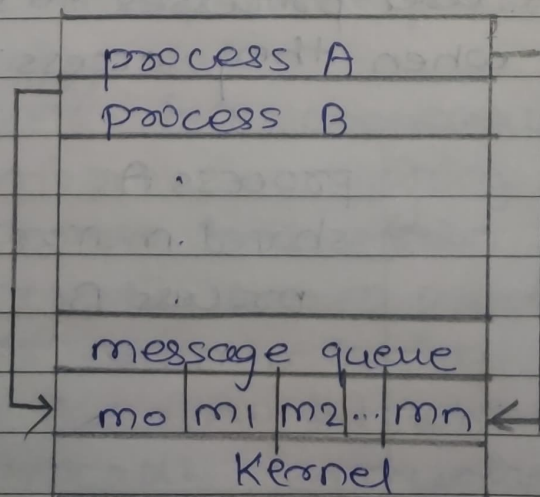 process A
process B
.
.
.
message queue
m0 m1 m2 ... mn
Kernel